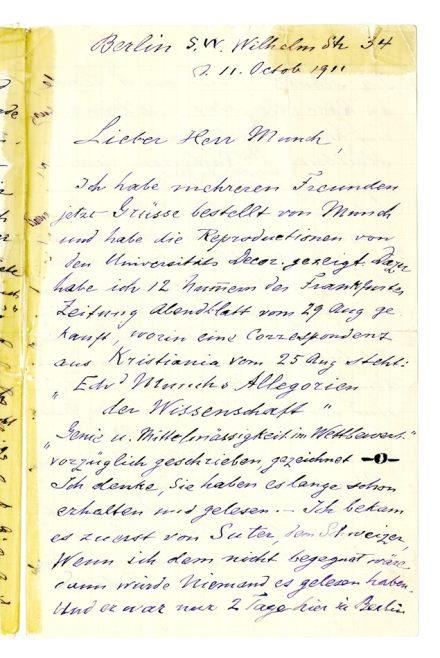 Berlin S.W. Wilhelm Str 34
d. 11. Octob 1911
Lieber Herr Munch,
Ich habe mehreren Freunden
jetzt Grüsse bestellt von Munch
und habe die Reproductionen von
den Universitäts Decor. gezeigt. Dazu
habe ich 12 Numern der Frankfurter
Zeitung Abendblatt vom 29 Aug ge
kauft, worin eine Correspondenz
aus Kristiania vom 25 Aug steht:
"Edvd Munchs Allegorien
der Wissenschaft"
"Genie u. Mittelmässigkeit im Wettbewerb."
vorzüglich geschrieben, gezeichnet -o-
Ich denke, Sie haben es lange schon
erhalten und gelesen. – Ich bekam
es zuerst von Suter, dem Schweizer,
Wenn ich dem nicht begegnet wäre,
dann würde Niemand es gelesen haben.
Und er war nur 2 Tage hier in Berlin